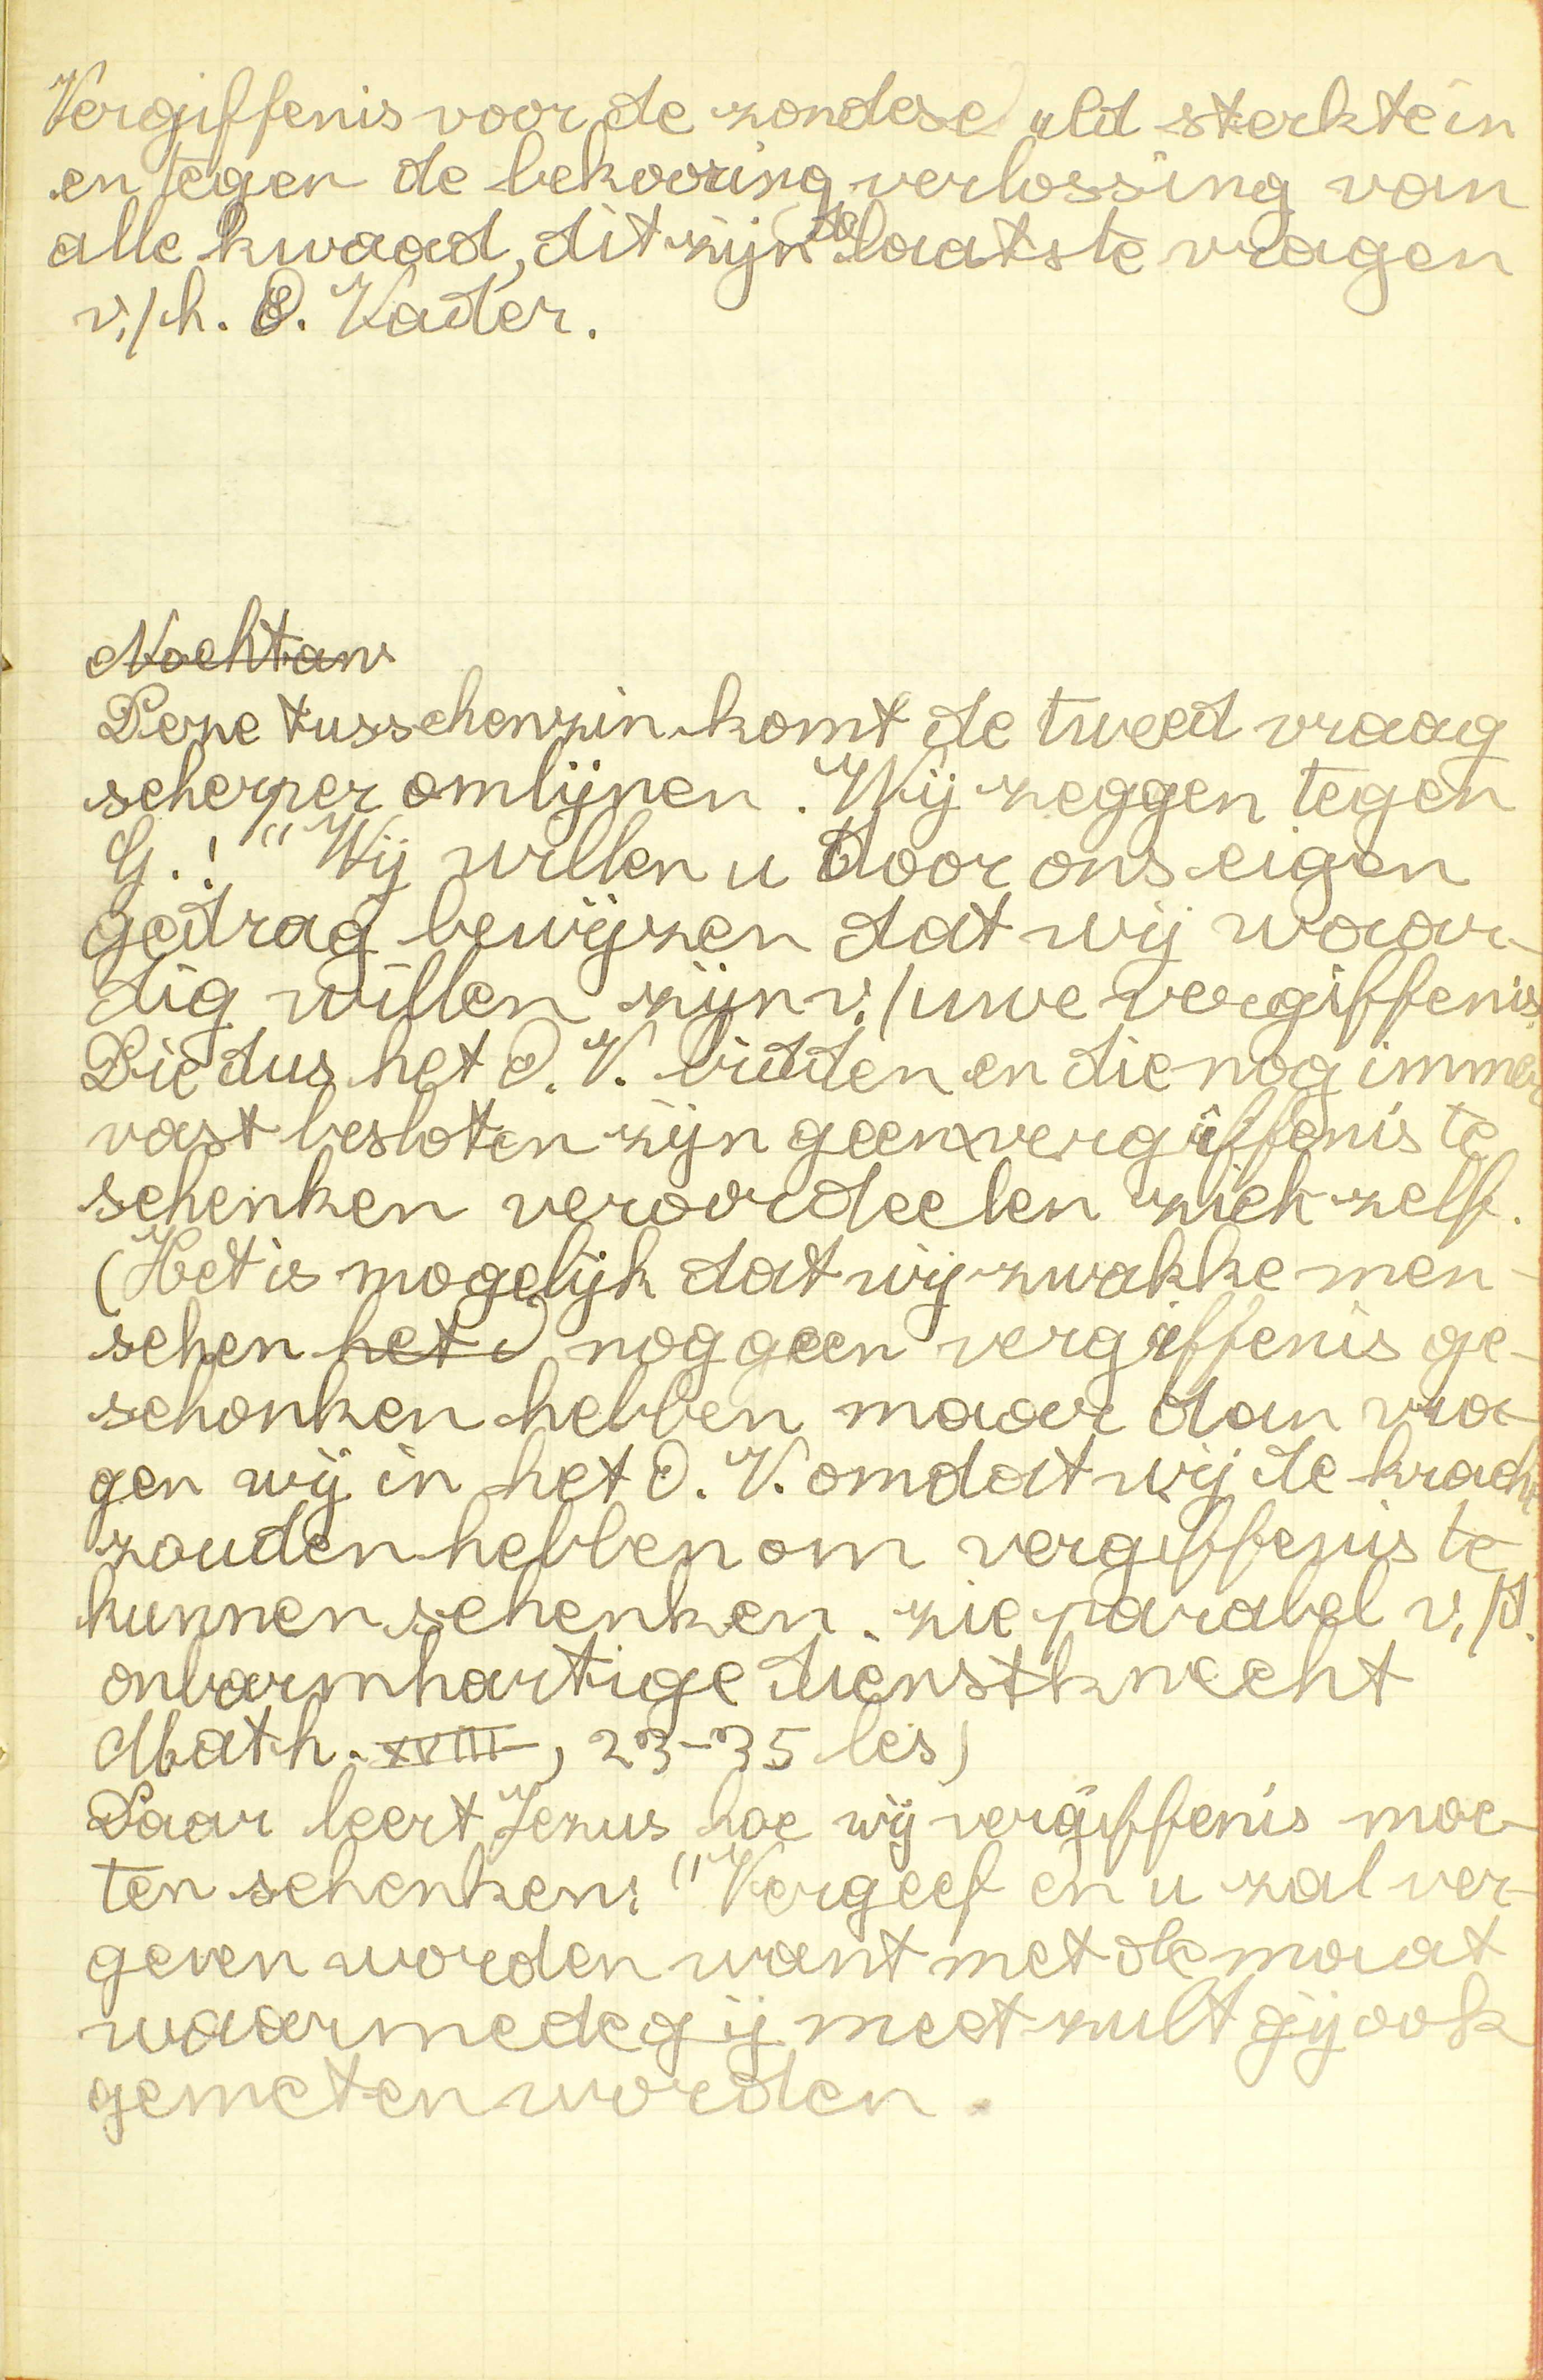 Vergiffenis voor de zondeschuld sterkte in
en tegen de bekooring, verlossing van
alle kwaad, dit zijn de laatste vragen
v./h. O. Vader.
Nochtans
Deze tusschenzin komt de tweed vraag
scherper omlijnen. Wij zeggen tegen
G.: "Wij willen u door ons eigen
gedrag bewijzen dat wij waar-
dig willen zijn v./uwe vergiffenis.
Die dus het O. V. bidden en die nog immer
vast besloten zijn geen vergiffenis te
schenken veroordeelen zich zelf.
(Het is mogelijk dat wij zwakke men-
schen het O nog geen vergiffenis ge-
schonken hebben maar dan vra-
gen wij in het O. V. omdat wij de kracht
zouden hebben om vergiffenis te
kunnen schenken. zie parabel v./d.
onbarmhartige dienstknecht
Math. XVIII, 23-35 les)
Daar leert Jezus hoe wij vergiffenis moe-
ten schenken: "Vergeef en u zal ver-
geven worden want met de maat
waarmede gij meet zult gij ook
gemeten worden.